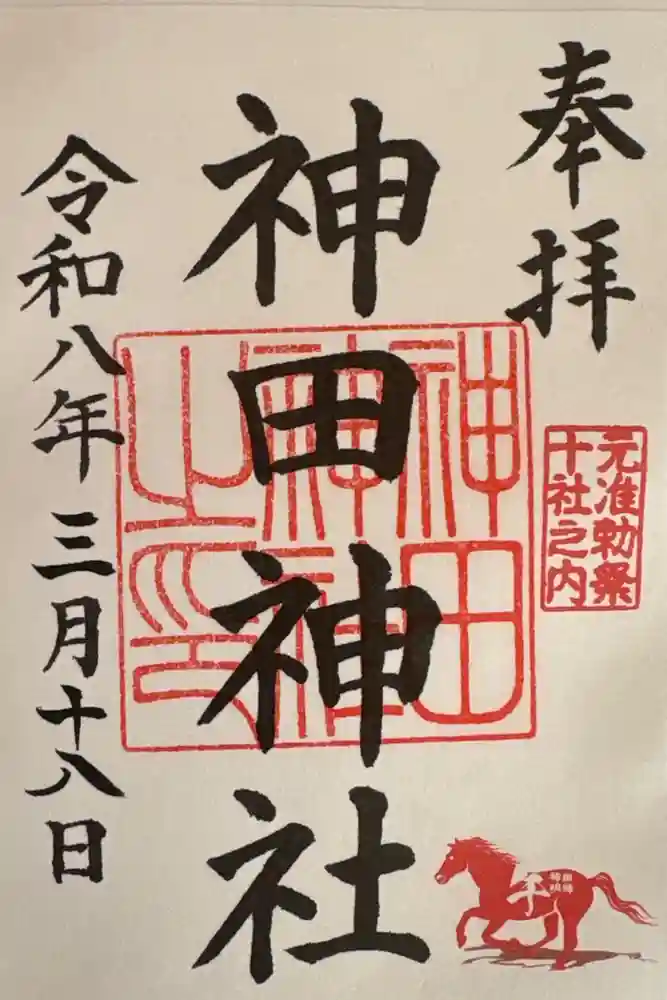 奉拝
元准勅祭
十社之内
神田神社
神田
神社
之印
令和八年三月十八日